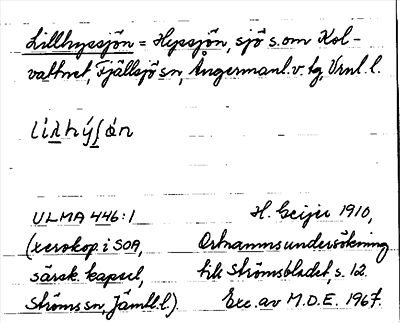 Lillhyssjön = Hyssjön, sjö s.om Kol-
vattnet, Fjällsjö sn, Ångermanl.v.tg, Vrnl.l.
ULMA 446:1
(xerokop. i SOA,
särsk. kapsel,
Ströms sn, Jämtl.l).
H. Geijer 1910,
Ortnamnsundersökning
till Strömsbladet, s. 12.
Exc. av M.D.E. 1967.